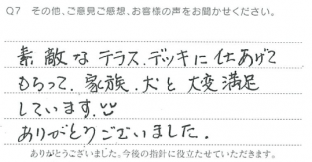 Q7 その他、ご意見ご感想、お客様の声をお聞かせください。
素敵なテラス.デッキに仕あげて
もらって、家族、犬と大変満足
しています.
ありがとうございました.
ありがとうございました。今後の指針に役立たせていただきます。